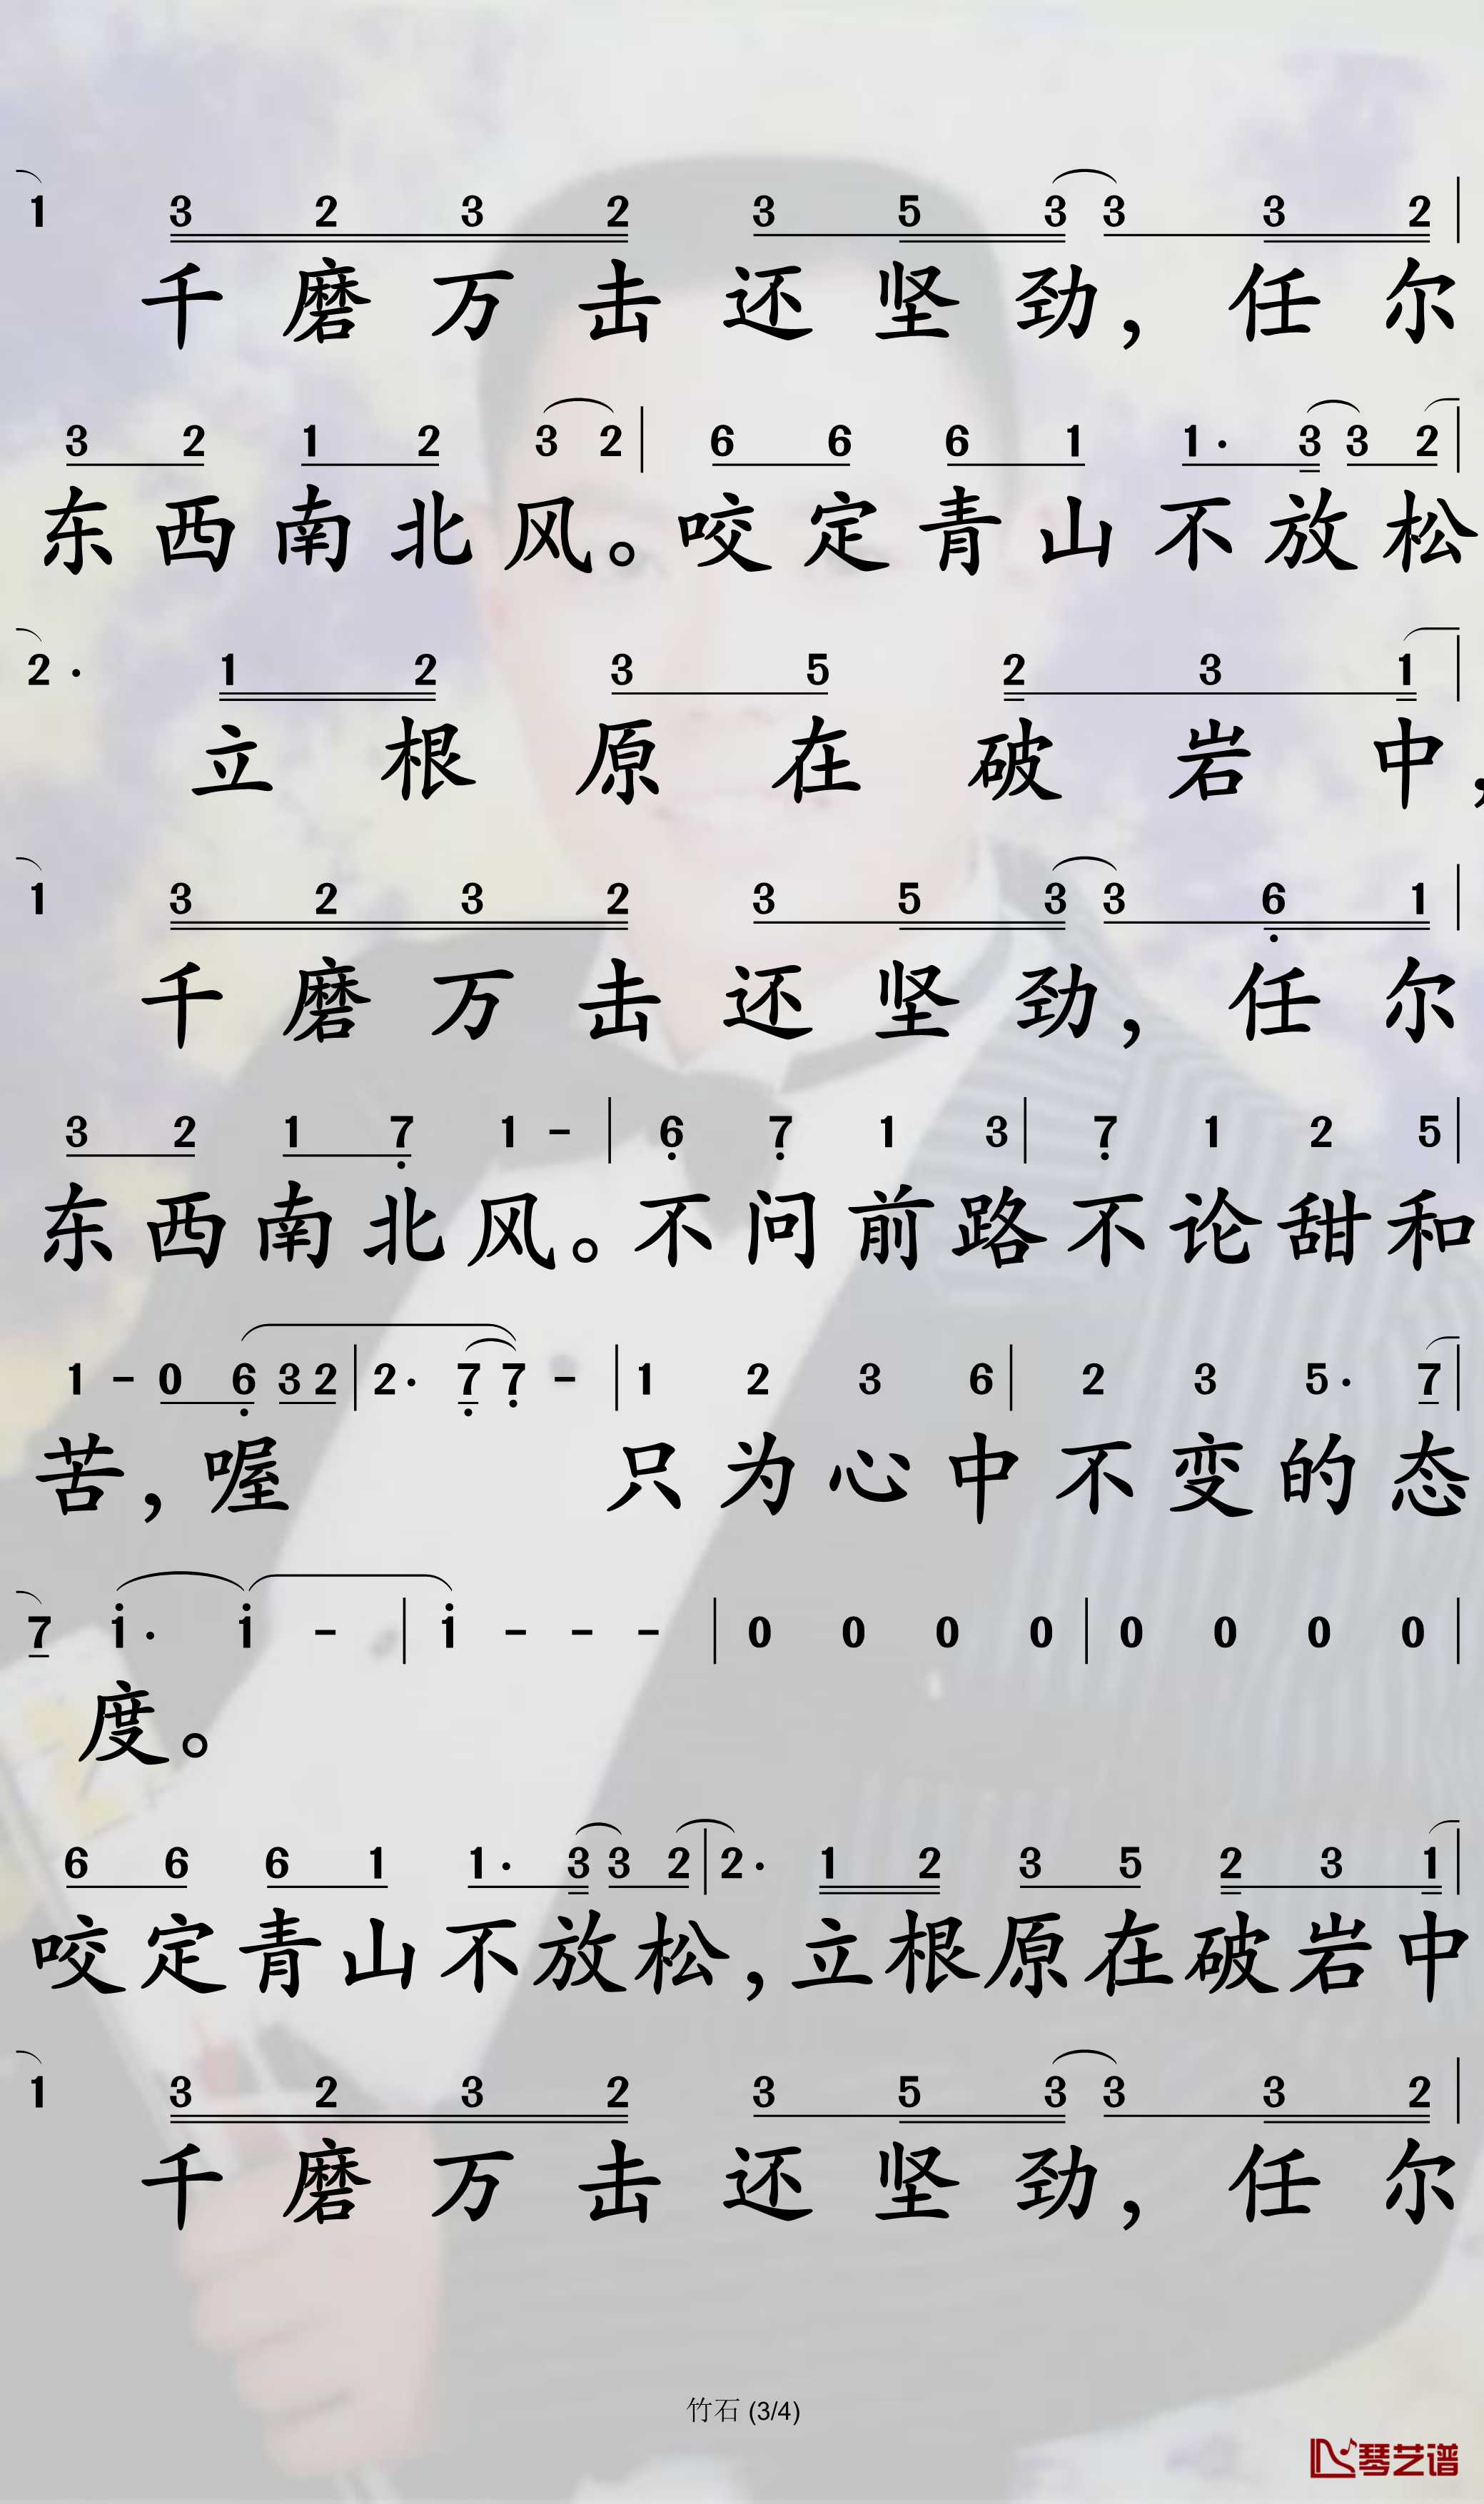 1 3 2 3 2 3 5 3 3 3 2
千磨万击还坚劲，任尔
3 2 1 2 3 2 | 6 6 6 1 1· 3 3 2
东西南北风。咬定青山不放松
2· 1 2 3 5 2 3 1
立根原在破岩中，
1 3 2 3 2 3 5 3 3 6 1
千磨万击还坚劲，任尔
3 2 1 7 1 - | 6 7 1 3 | 7 1 2 5
东西南北风。不问前路不论甜和
1 - 0 6 3 2 | 2· 7 7 - | 1 2 3 6 | 2 3 5· 7
苦，喔 只为心中不变的态
7 1· 1 - | 1 - - - | 0 0 0 0 | 0 0 0 0
度。
6 6 6 1 1· 3 3 2 | 2· 1 2 3 5 2 3 1
咬定青山不放松，立根原在破岩中
1 3 2 3 2 3 5 3 3 3 2
千磨万击还坚劲，任尔
竹石 (3/4)
琴艺谱